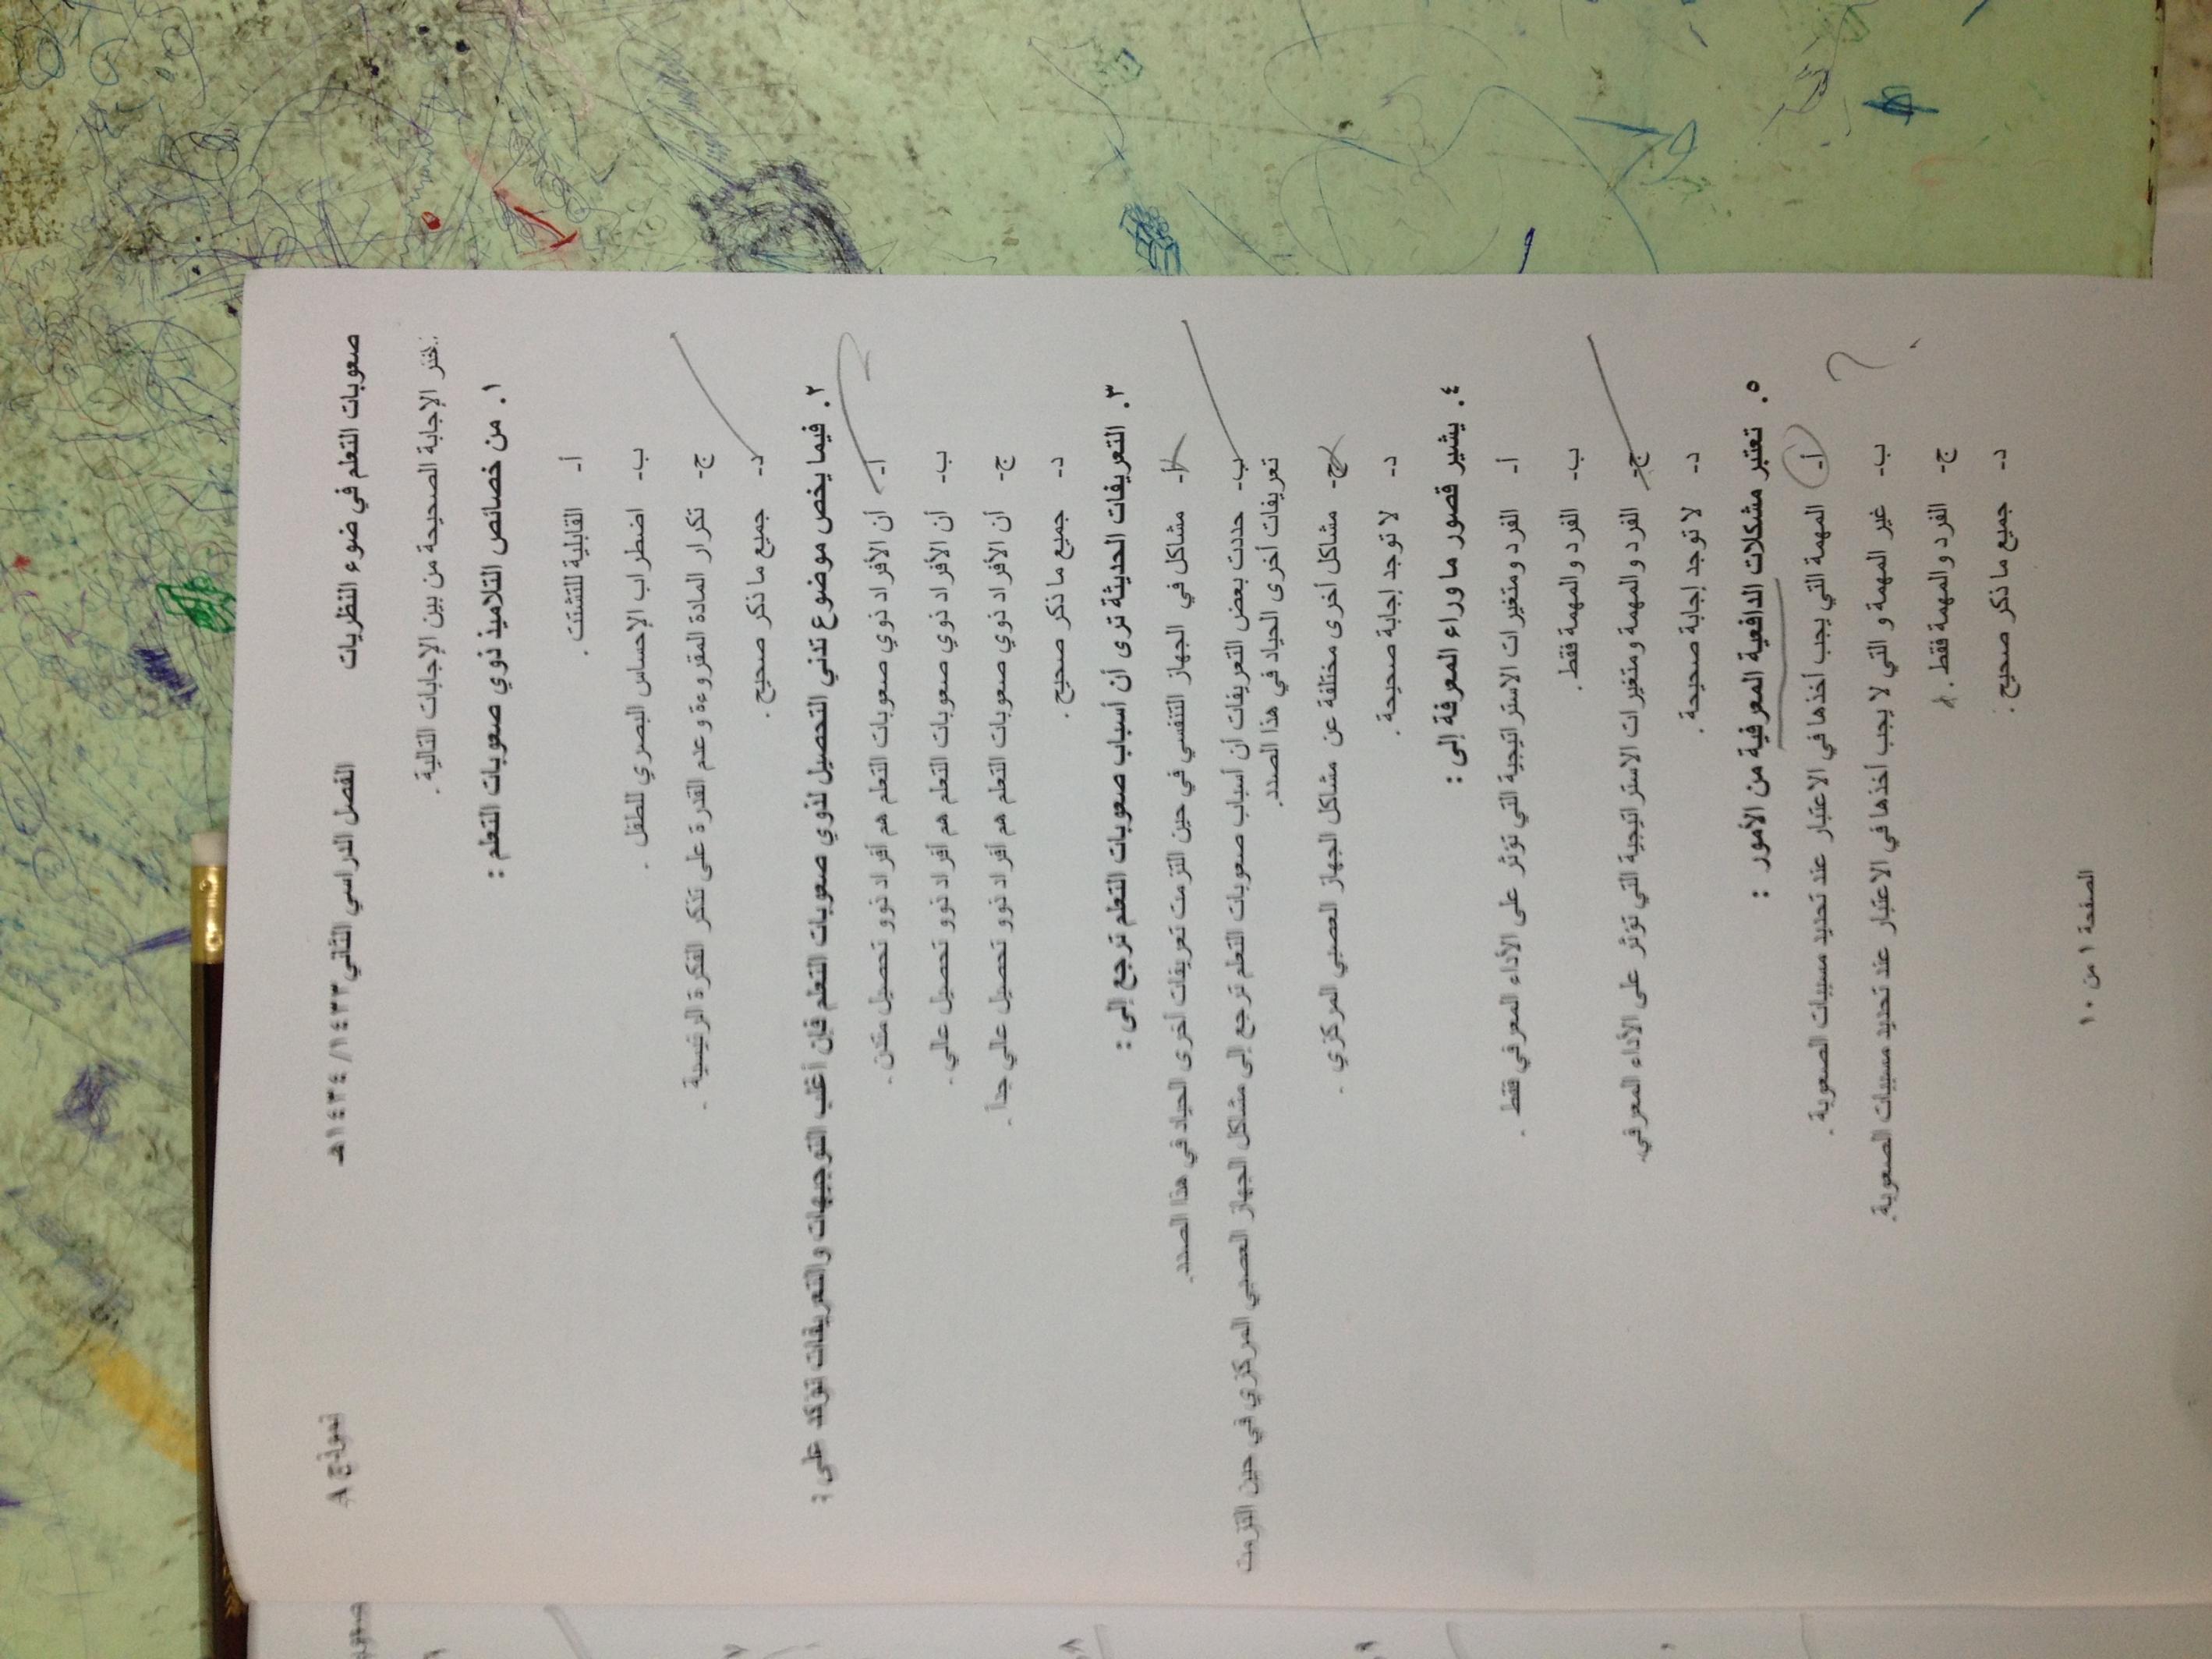 صعوبات التعلم في ضوء النظريات الفصل الدراسي الثاني ١٤٣٣/ ١٤٣٤هـ نموذج A
اختر الإجابة الصحيحة من بين الإجابات التالية .
١. من خصائص التلاميذ ذوي صعوبات التعلم :
أ- القابلية للتشتت .
ب- اضطراب الإحساس البصري للطفل .
ج- تكرار المادة المقروءة وعدم القدرة على تذكر الفكرة الرئيسية .
د- جميع ما ذكر صحيح .
٢. فيما يخص موضوع تدني التحصيل لذوي صعوبات التعلم فإن أغلب التوجيهات والتعريفات تؤكد على :
أ- أن الأفراد ذوي صعوبات التعلم هم أفراد ذوو تحصيل متدن .
ب- أن الأفراد ذوي صعوبات التعلم هم أفراد ذوو تحصيل عالي .
ج- أن الأفراد ذوي صعوبات التعلم هم أفراد ذوو تحصيل عالي جداً .
د- جميع ما ذكر صحيح .
٣. التعريفات الحديثة ترى أن أسباب صعوبات التعلم ترجع إلى :
أ- مشاكل في الجهاز التنفسي في حين التزمت تعريفات أخرى الحياد في هذا الصدد.
ب- حددت بعض التعريفات أن أسباب صعوبات التعلم ترجع إلى مشاكل الجهاز العصبي المركزي في حين التزمت
تعريفات أخرى الحياد في هذا الصدد.
ج- مشاكل أخرى مختلفة عن مشاكل الجهاز العصبي المركزي .
د- لا توجد إجابة صحيحة .
٤. يشير قصور ما وراء المعرفة إلى :
أ- الفرد ومتغيرات الاستراتيجية التي تؤثر على الأداء المعرفي فقط .
ب- الفرد والمهمة فقط .
ج- الفرد والمهمة ومتغيرات الاستراتيجية التي تؤثر على الأداء المعرفي.
د- لا توجد إجابة صحيحة .
٥. تعتبر مشكلات الدافعية المعرفية من الأمور :
أ- المهمة التي يجب أخذها في الاعتبار عند تحديد مسببات الصعوبة .
؟
ب- غير المهمة و التي لا يجب أخذها في الاعتبار عند تحديد مسببات الصعوبة.
ج- الفرد والمهمة فقط .
د- جميع ما ذكر صحيح .
الصفحة ١ من ١٠
٧
٨
٩